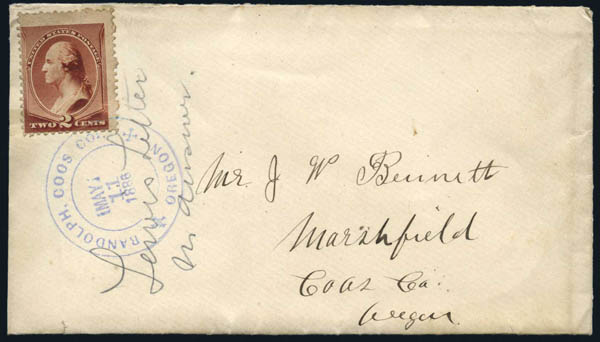 UNITED STATES POSTAGE
TWO 2 CENTS
RANDOLPH, COOS CO. OREGON
MAY
11
1886
letter
answer.
Mr. J W Bennett
Marshfield
Coos Co.
Oregon